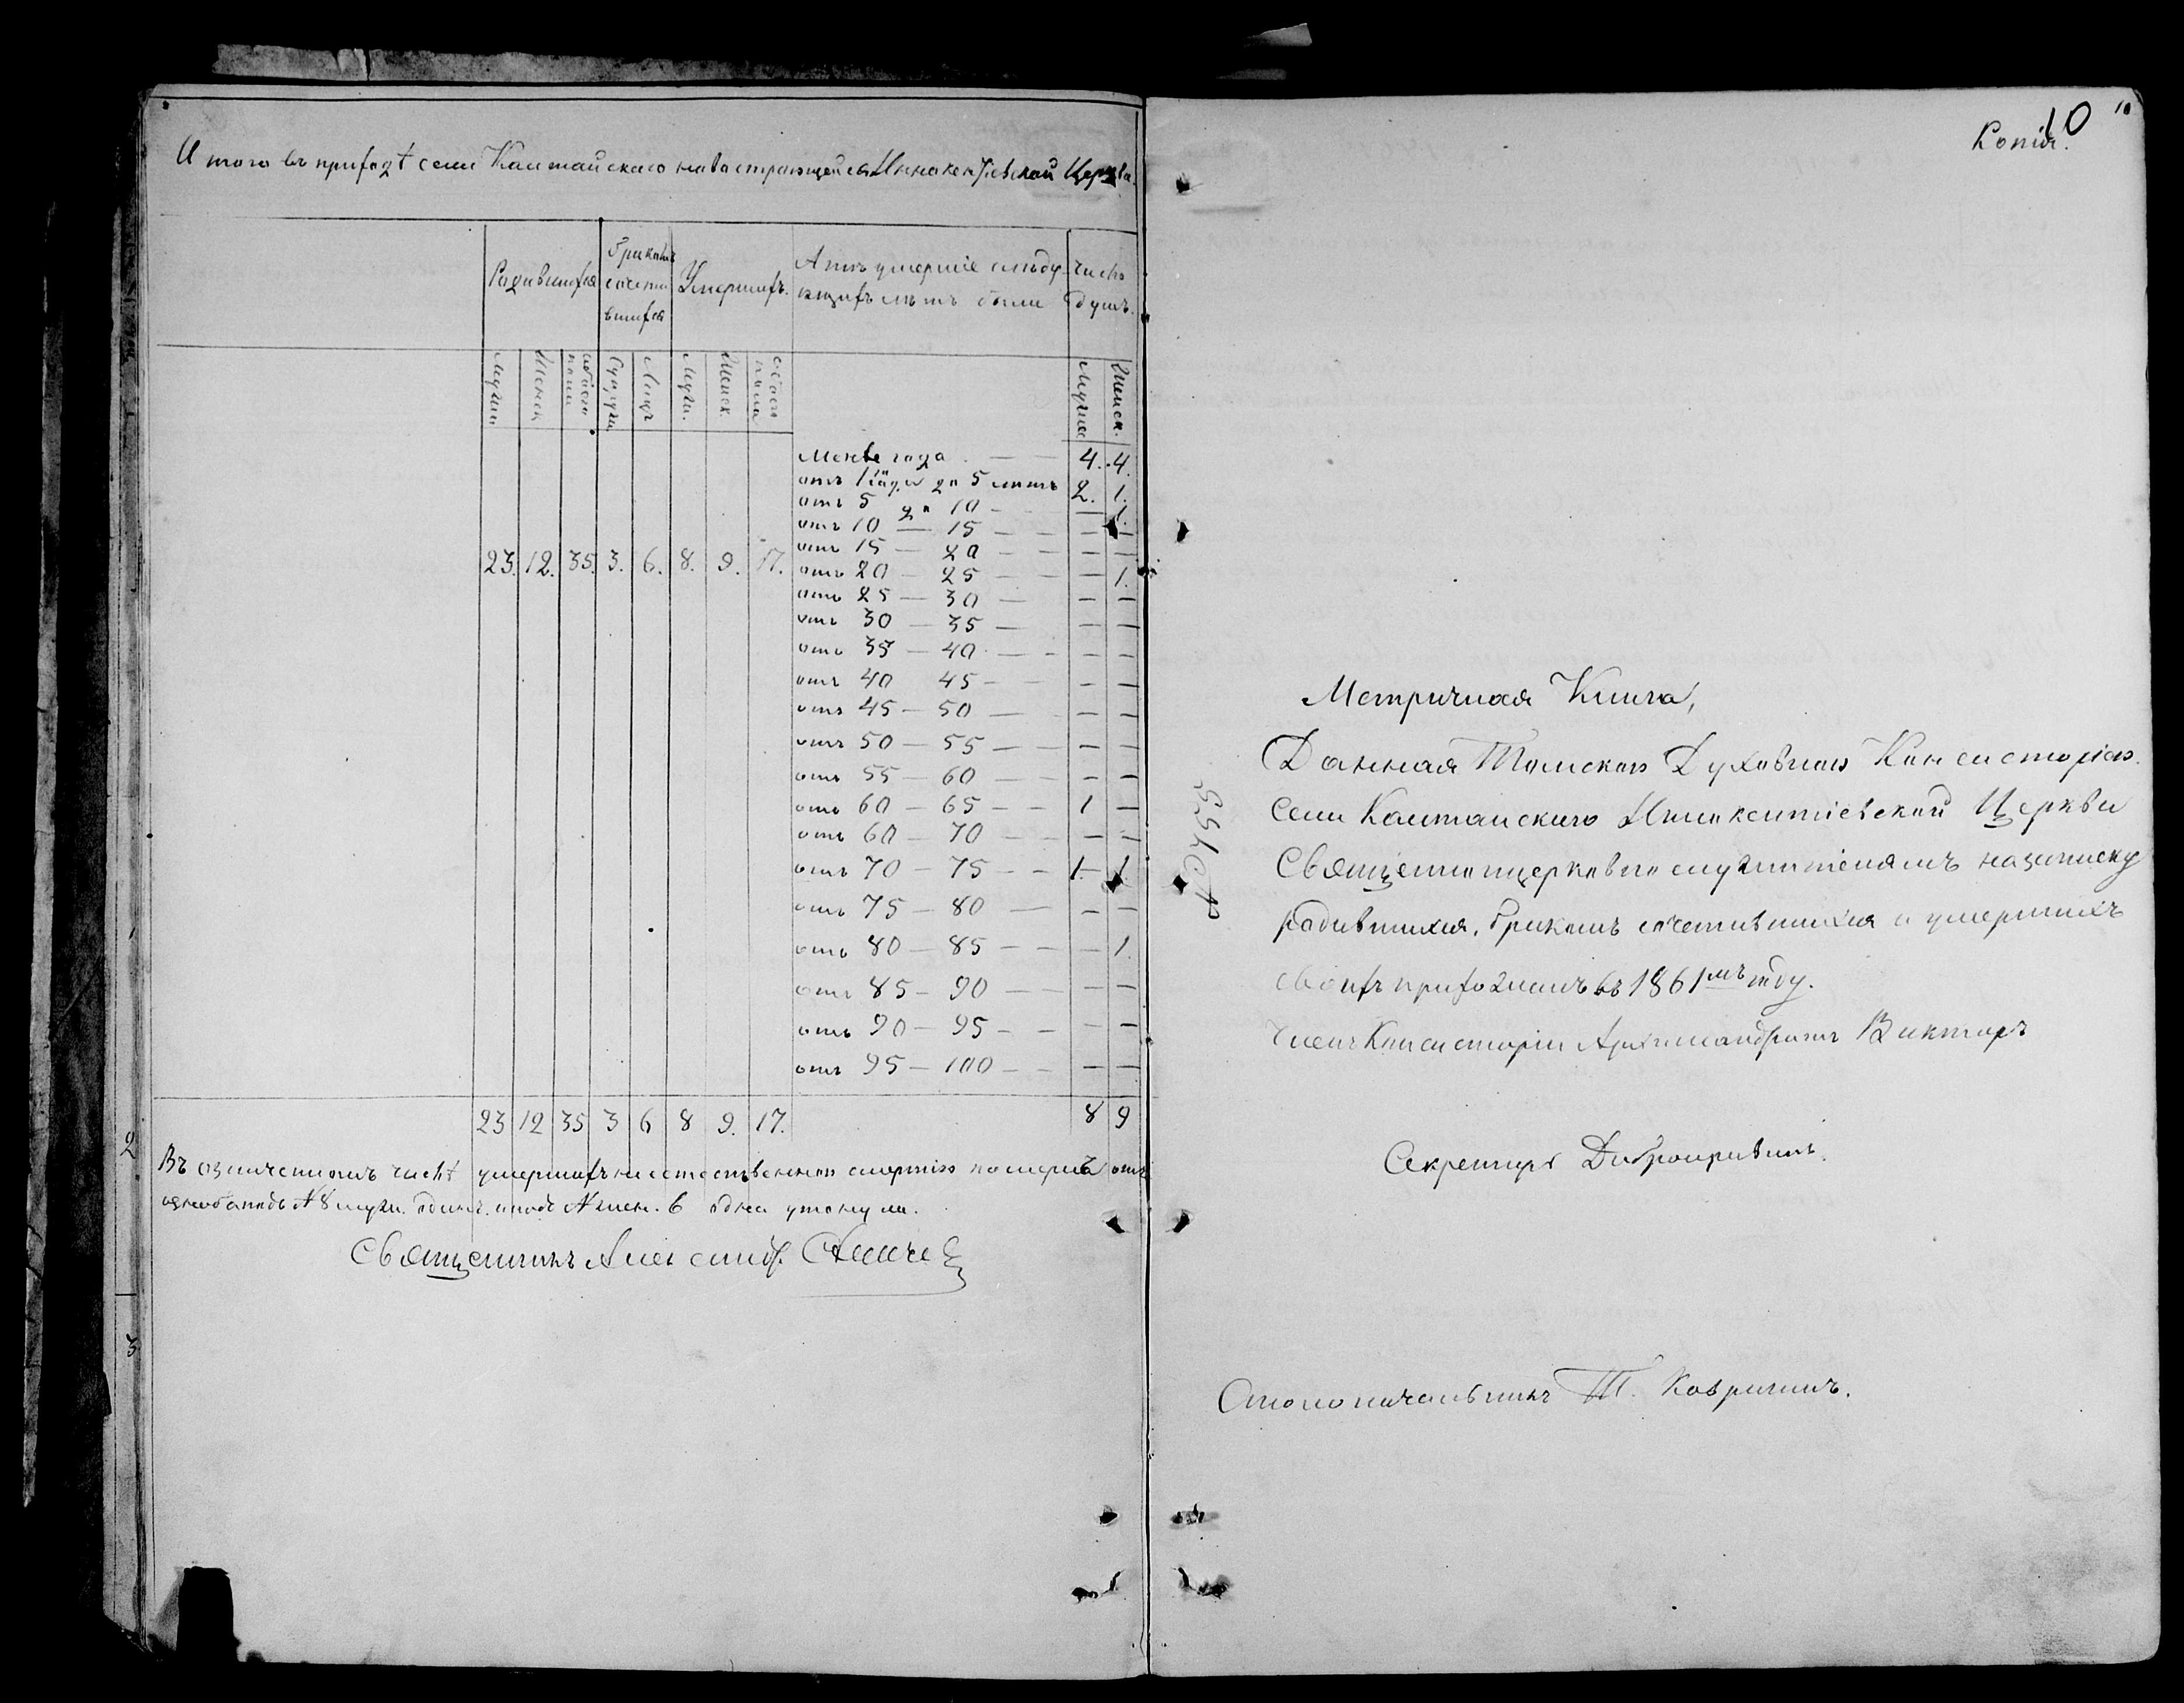 Итого въ приходѣ села Колтайскаго новостроющейся Иннокентіевской Церкви.
Родившихся
Бракомъ сочетавшихся
Умершихъ.
А отъ умершіе слѣду-
ющихъ лѣтъ были
число
душъ.
Мужск
Женск
обоего пола
Супруж
Лицъ
Мужч.
Женск.
обоего пола
Мужск
Женск.
Менѣе года — — 4. 4.
отъ 1 года до 5 лѣтъ 2. 1.
отъ 5 до 10 — — 1.
отъ 10 — 15 — — — —
отъ 15 — 20 — — — —
23. 12. 35. 3. 6. 8. 9. 17.
отъ 20 — 25 — — — 1.
отъ 25 — 30 — — —
отъ 30 — 35 — — —
отъ 35 — 40 — — — —
отъ 40 45 — — — —
отъ 45 — 50 — — —
отъ 50 — 55 — — — —
отъ 55 — 60 — — — —
отъ 60 — 65 — — 1 —
отъ 60 — 70 — — — —
отъ 70 — 75 — — 1. 1.
отъ 75 — 80 — — —
отъ 80 — 85 — — — 1.
отъ 85 — 90 — — — —
отъ 90 — 95 — — — —
отъ 95 — 100 — — — —
23 12 35 3 6 8 9. 17. 8 9
Въ означенномъ числѣ умершихъ неестественною смертію померъ отъ
подъ № 8 мужч. одинъ. и подъ № жен. 6 одна утонула.
Священникъ Александр.
2
3
10
10
Копія.
Метричная Книга,
Данная Томскою Духовною Консисторіею.
Села Колтайскаго Иннокентіевской Церкви
Священноцерковнослужителямъ на записку
родившихся, бракомъ сочетавшихся и умершихъ
своихъ прихожанъ въ 1861мъ году.
Членъ Консисторіи Архимандритъ Викторъ
Секретарь Добронравинъ.
Столоначальникъ Т. Ковригинъ.